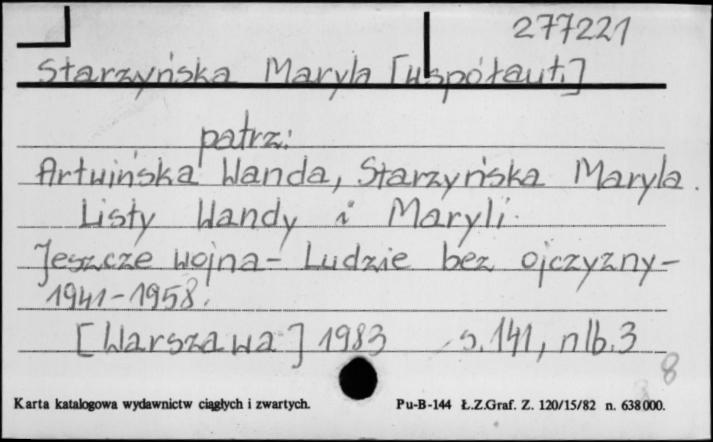 277221
Starzyńska Maryla [współaut.]
patrz:
Artwińska Wanda, Starzyńska Maryla.
Listy Wandy i Maryli.
Jeszcze wojna - Ludzie bez ojczyzny -
1941-1958.
[Warszawa] 1983 s. 141, nlb. 3
8
Karta katalogowa wydawnictw ciągłych i zwartych. Pu-B-144 Ł.Z.Graf. Z. 120/15/82 n. 638000.